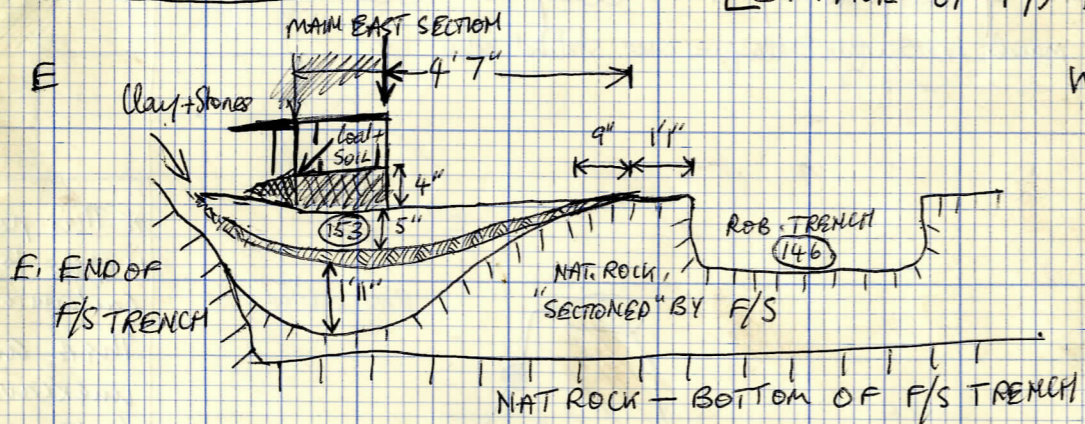 MAIN EAST SECTION
E
4' 7"
Clay+Stones
Coal+
SOIL
9"
1'1"
4"
153
5"
ROB. TRENCH
146
E. END OF
F/S TRENCH
1'11"
NAT. ROCK,
"SECTIONED" BY F/S
NAT ROCK — BOTTOM OF F/S TRENCH